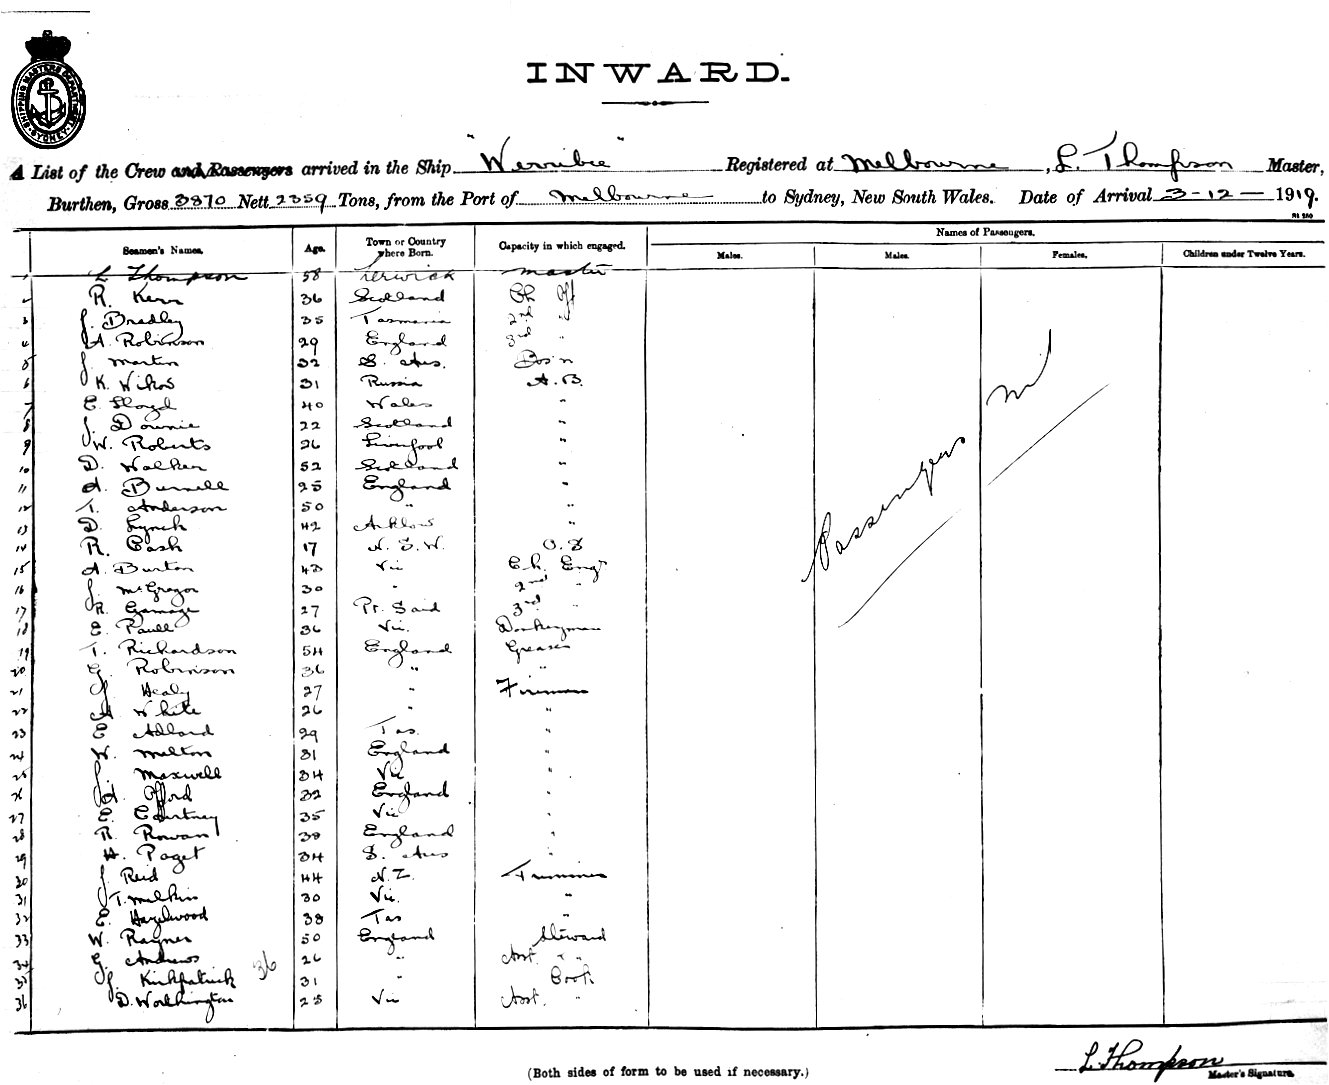 SHIPPING MASTERS DEPARTMENT SYDNEY
INWARD.
A List of the Crew and Passengers arrived in the Ship "Werribee" Registered at Melbourne, L. Thompson Master,
Burthen, Gross 3870 Nett 2359 Tons, from the Port of Melbourne to Sydney, New South Wales. Date of Arrival 3-12- 1919.
Seamen's Names. Age. Town or Country where Born. Capacity in which engaged. Names of Passengers.
Males. Males. Females. Children under Twelve Years.
1 L Thompson 58 Lerwick Master
2 R. Kerr 36 Scotland Ch Off
3 J. Bradley 35 Tasmania 2nd "
4 A. Robinson 29 England 3rd "
5 J. Martin 32 S. Aus. Bos'n
6 K. 31 Russia A.B.
7 E. Lloyd 40 Wales "
8 J. Downie 22 Scotland "
9 W. Roberts 26 Liverpool "
10 D. Walker 52 Scotland "
11 A. Burnell 25 England "
12 T. Anderson 50 " "
13 D. Lynch 42 Arklow "
14 R. Cash 17 N.S.W. O.S
15 A. Burton 43 Vic Ch. Engr
16 J. McGregor 30 " 2nd "
17 R. Gamage 27 Pt. Said 3rd "
18 E. Paull 36 Vic. Donkeyman
19 T. Richardson 54 England Greaser
20 G. Robinson 36 " "
21 J Healy 27 " Fireman
22 A White 26 " "
23 E Adlard 29 Tas. "
24 W. Melton 31 England "
25 J. Maxwell 34 Vic "
26 A. Offord 32 England "
27 E. Courtney 35 Vic "
28 R. Rowan 38 England "
29 H. Paget 34 S. Aus "
30 J Reid 44 N.Z. Trimmer
31 T. Milkins 30 Vic. "
32 E. Hazelwood 38 Tas "
33 W. Rayner 50 England Steward
34 G. Andrews 26 " Asst. "
35 J. Kirkpatrick 31 " Cook
36 D. Worthington 25 Vic Asst. "
36
Passengers Nil
L. Thompson
Master's Signature.
(Both sides of form to be used if necessary.)